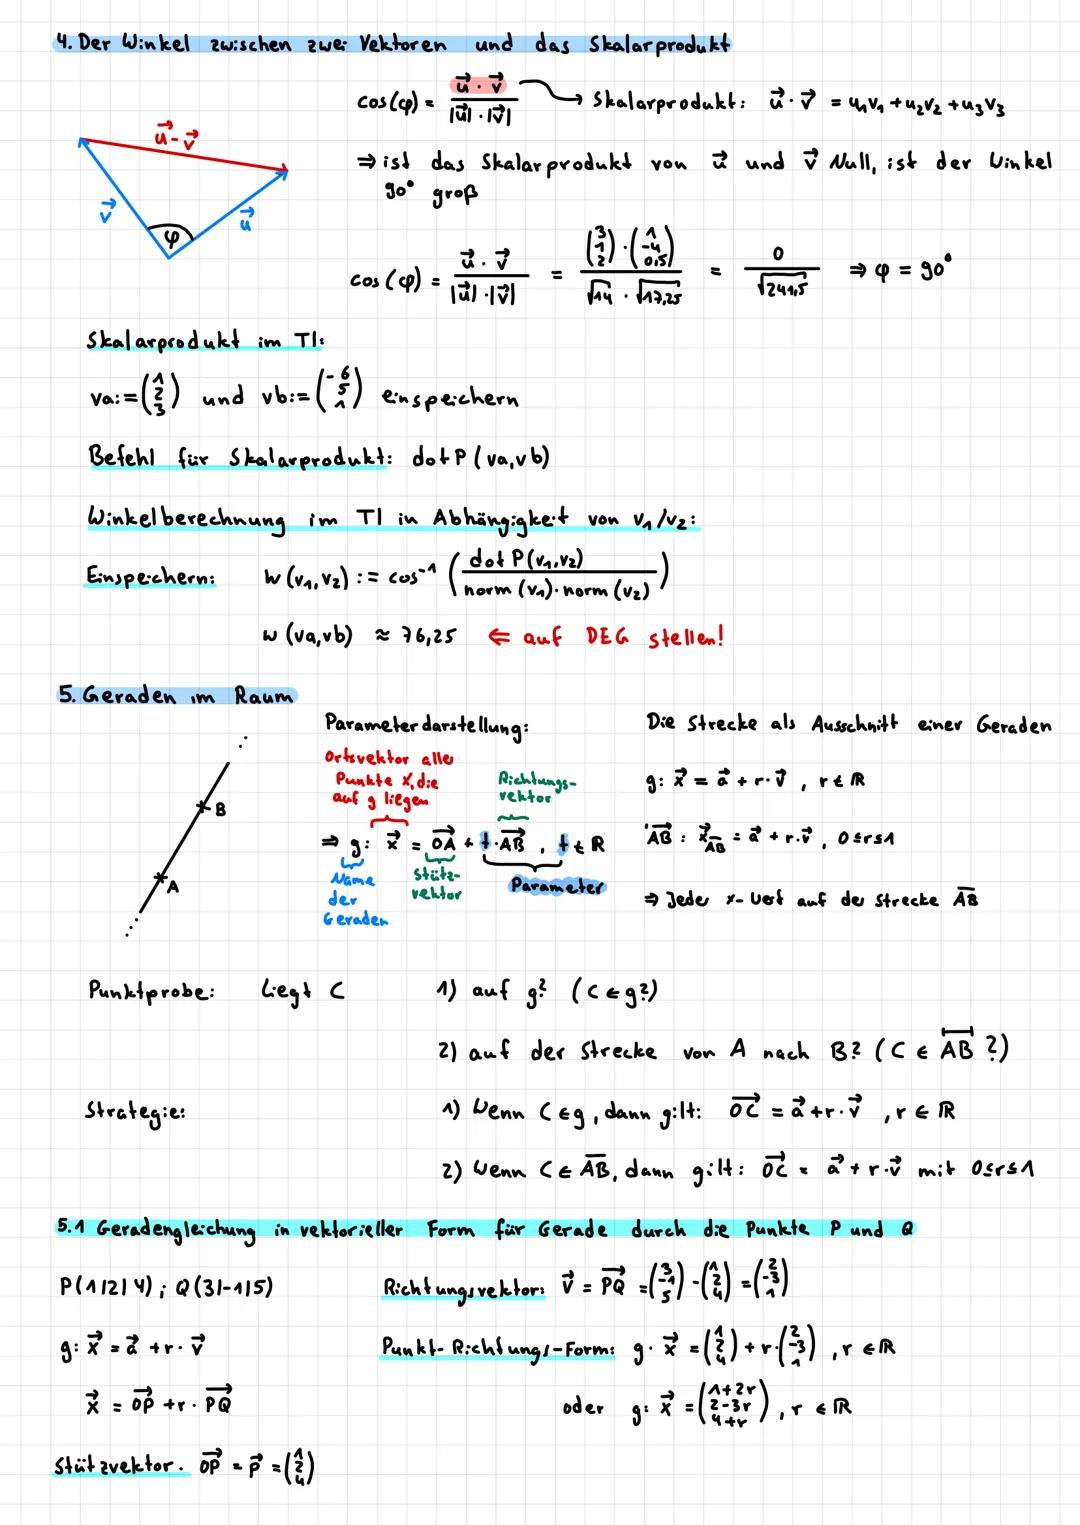 4. Der Winkel zwischen zwei Vektoren und das Skalarprodukt
cos(φ) = (u⃗ · v⃗) / (|u⃗| · |v⃗|) → Skalarprodukt: u⃗ · v⃗ = u₁v₁ + u₂v₂ + u₃v₃
u⃗ - v⃗
v⃗
u⃗
φ
⇒ ist das Skalarprodukt von u⃗ und v⃗ Null, ist der Winkel
90° groß
cos(φ) = (u⃗ · v⃗) / (|u⃗| · |v⃗|) = ((3 1 2) · (1 -4 0,5)) / (√14 · √17,25) = 0 / √241,5 ⇒ φ = 90°
Skalarprodukt im TI:
va:= (1 2 3) und vb:= (-6 5 1) einspeichern
Befehl für Skalarprodukt: dotP (va,vb)
Winkelberechnung im TI in Abhängigkeit von v₁/v₂:
Einspeichern: w (v₁, v₂) := cos⁻¹ (dot P(v₁,v₂) / norm (v₁) · norm (v₂))
w (va,vb) ≈ 76,25 ⇐ auf DEG stellen!
5. Geraden im Raum
B
A
Parameterdarstellung:
Ortsvektor aller
Punkte X, die
auf g liegen
Richtungs-
vektor
⇒ g: x⃗ = OA⃗ + t · AB⃗ , t ∈ ℝ
Name
der
Geraden
Stütz-
vektor
Parameter
Die Strecke als Ausschnitt einer Geraden
g: x⃗ = a⃗ + r · v⃗ , r ∈ ℝ
AB : x⃗AB = a⃗ + r · v⃗ , 0 ≤ r ≤ 1
⇒ Jeder x-Wert auf der Strecke AB
Punktprobe: Liegt C 1) auf g? (C ∈ g?)
2) auf der Strecke von A nach B? (C ∈ AB ?)
Strategie: 1) Wenn C ∈ g, dann gilt: OC⃗ = a⃗ + r · v⃗ , r ∈ ℝ
2) Wenn C ∈ AB, dann gilt: OC⃗ = a⃗ + r · v⃗ mit 0 ≤ r ≤ 1
5.1 Geradengleichung in vektorieller Form für Gerade durch die Punkte P und Q
P(1|2|4) ; Q(3|-1|5) Richtungsvektor: v⃗ = PQ⃗ = (3 -1 5) - (1 2 4) = (2 -3 1)
g: x⃗ = a⃗ + r · v⃗ Punkt-Richtungs-Form: g: x⃗ = (1 2 4) + r · (2 -3 1) , r ∈ ℝ
x⃗ = OP⃗ + r · PQ⃗ oder g: x⃗ = (1+2r 2-3r 4+r) , r ∈ ℝ
Stützvektor. OP⃗ = p⃗ = (1 2 4)